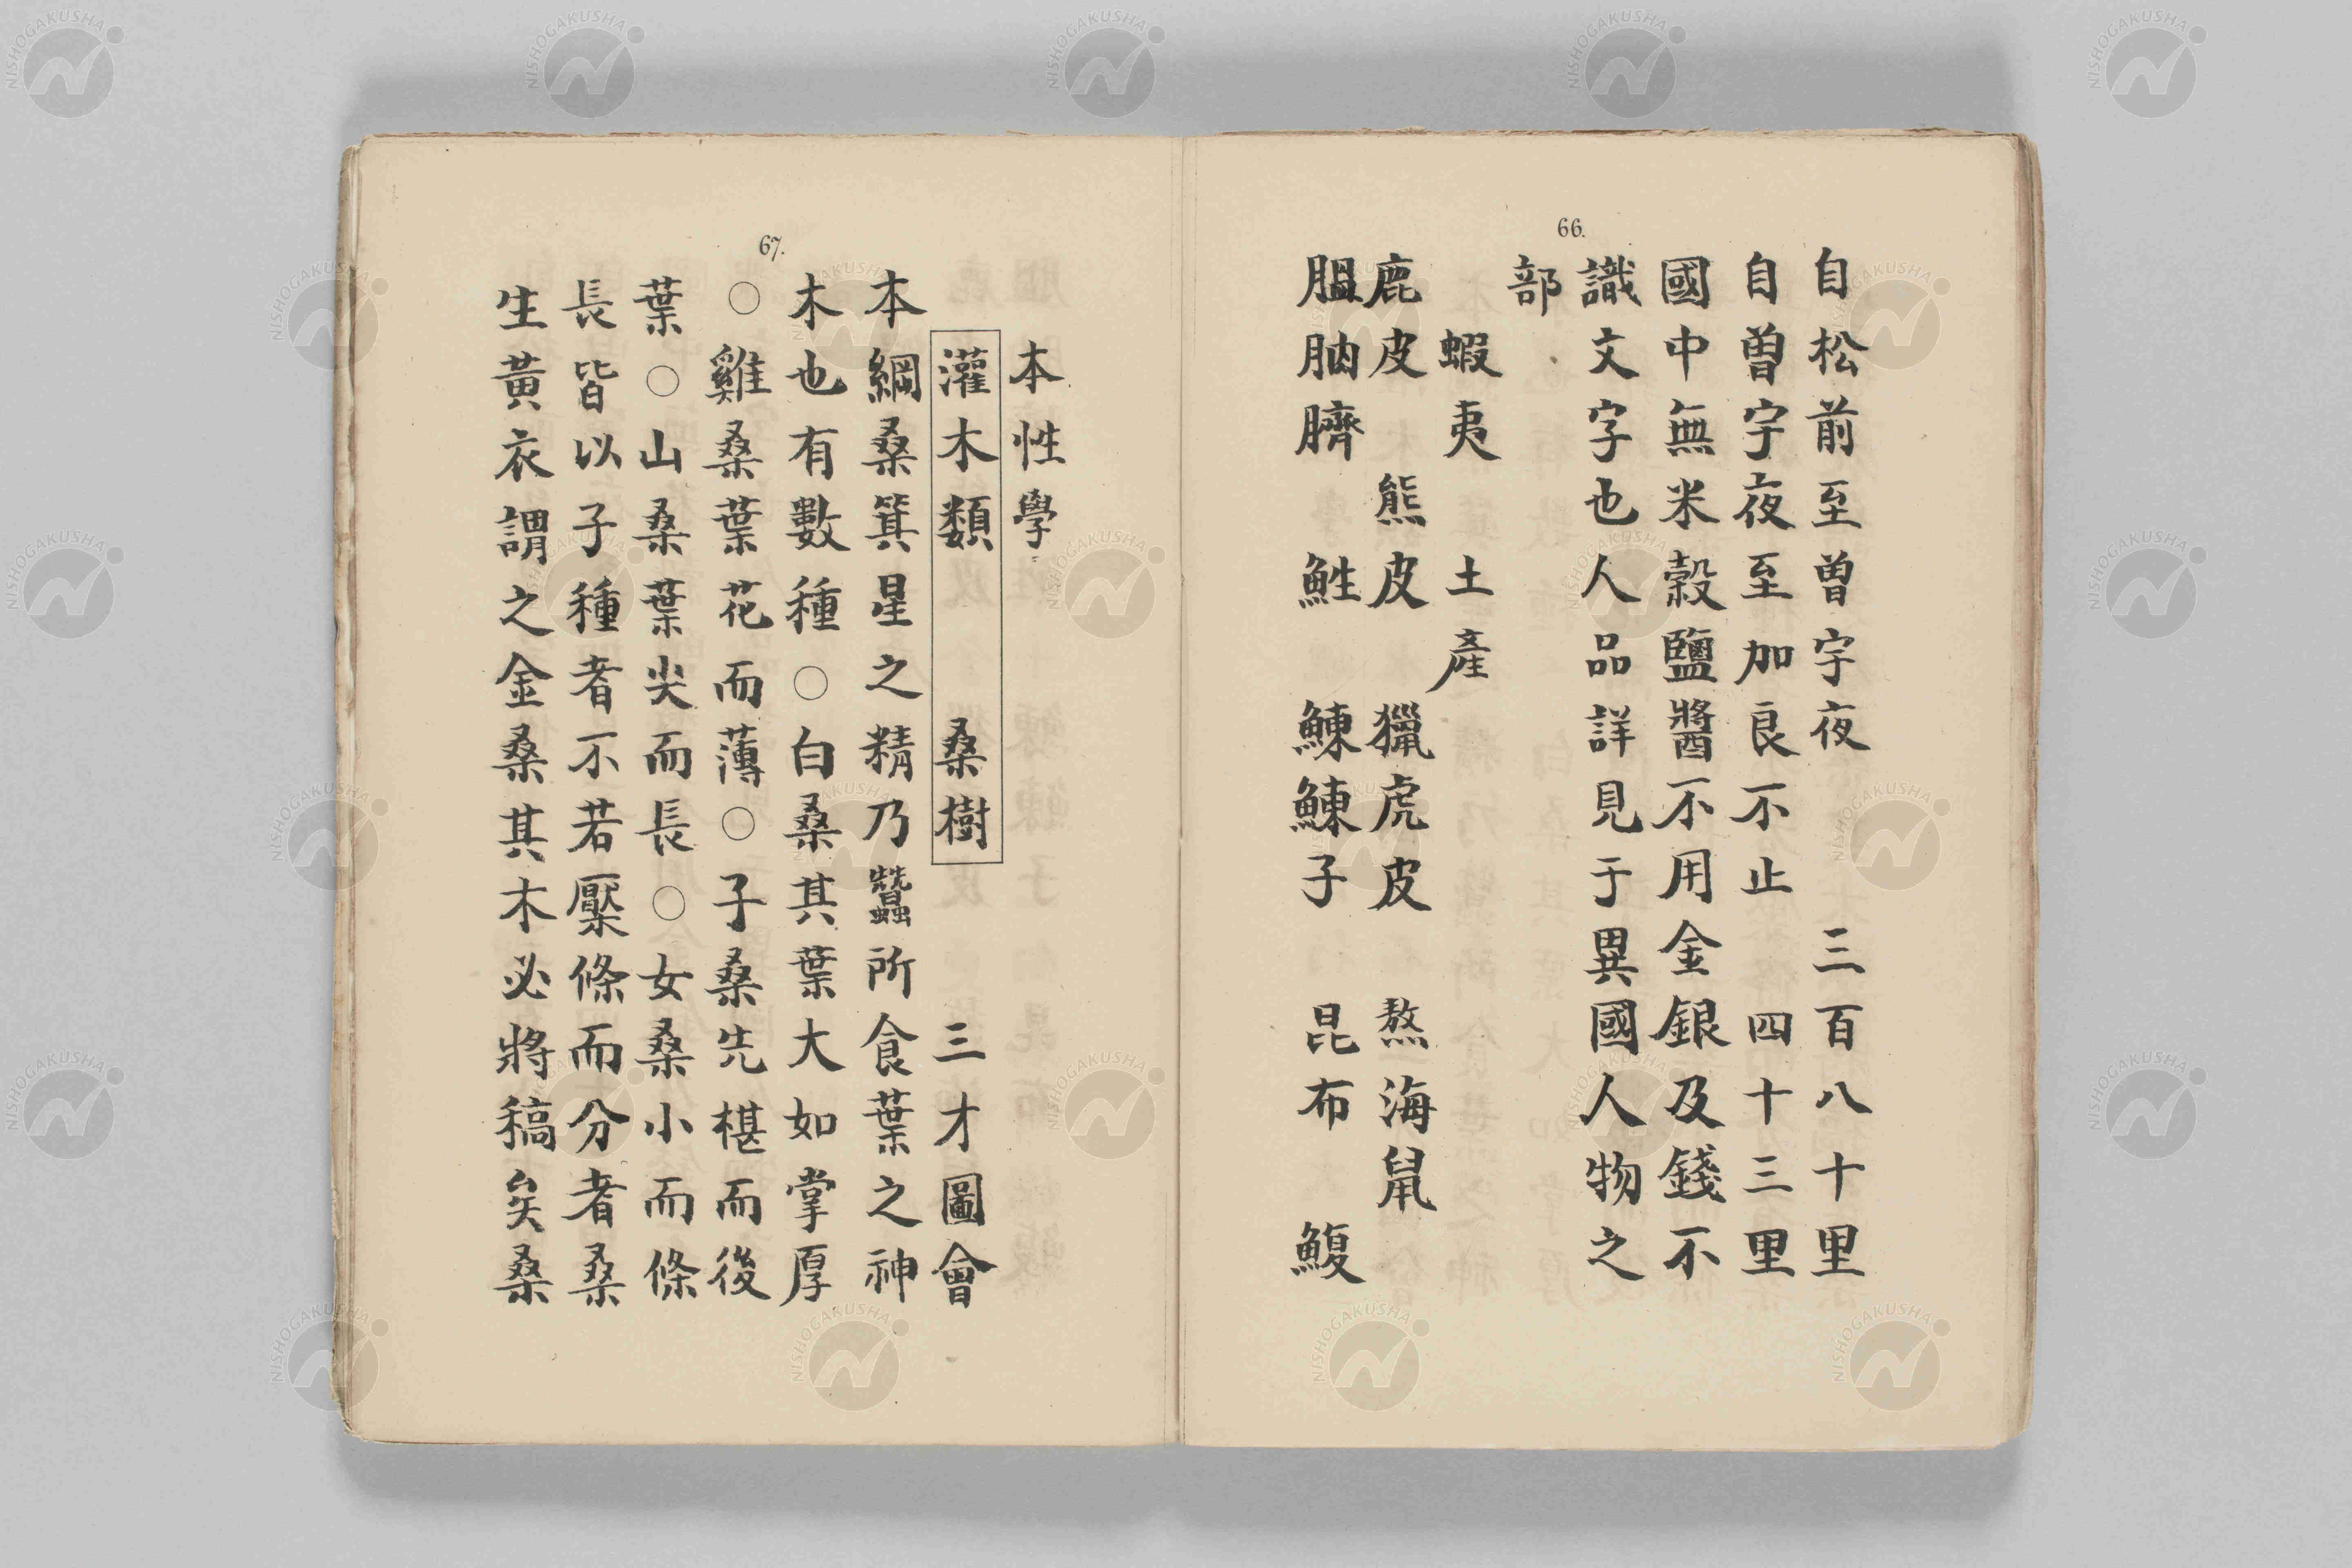 66.
自松前至曽宇夜 三百八十里
自曽宇夜至加良不止 四十三里
國中無米穀鹽醬不用金銀及錢不
識文字也人品詳見于異國人物之
部
蝦夷 土產
鹿皮 熊皮 獵虎皮 熬海鼠
膃肭臍 鮏 鰊鰊子 昆布 鰒
67.
本性學
灌木類 桑樹 三才圖會
本綱桑箕星之精乃蠶所食葉之神
木也有數種○白桑其葉大如掌厚
○雞桑葉花而薄○子桑先椹而後
葉○山桑葉尖而長○女桑小而條
長皆以子種者不若壓條而分者桑
生黃衣謂之金桑其木必將稿矣桑
NISHOGAKUSHA